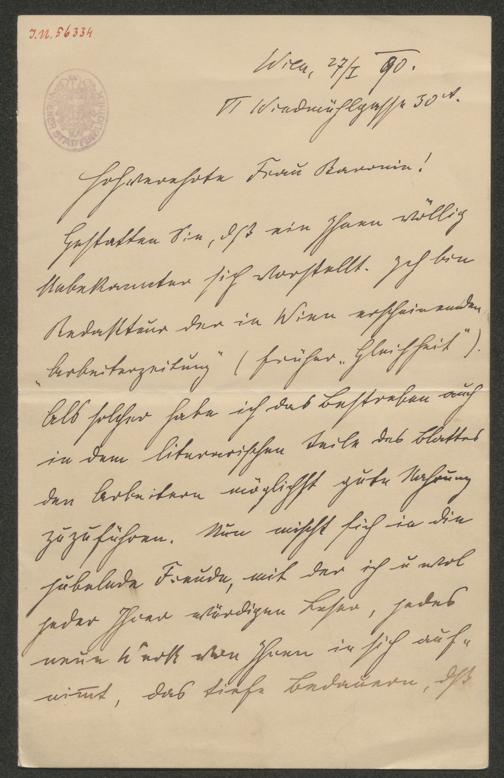 I.N. 56334
Wien, 27/I 90.
VI Windmühlgasse 30A.
Hochverehrte Frau Baronin!
Gestatten Sie, daß ein Ihnen völlig
Unbekannter sich vorstellt. Ich bin
Redakteur der in Wien erscheinenden
„Arbeiterzeitung" (früher „Gleichheit").
Als solcher habe ich das Bestreben auch
in dem literarischen Teile des Blattes
den Arbeitern möglichst gute Nahrung
zuzuführen. Nun mischt sich in die
jubelnde Freude, mit der ich u wol
jeder Ihrer würdigen Leser, jedes
neue Werk von Ihnen in sich auf-
nimmt, das tiefe Bedauern, daß